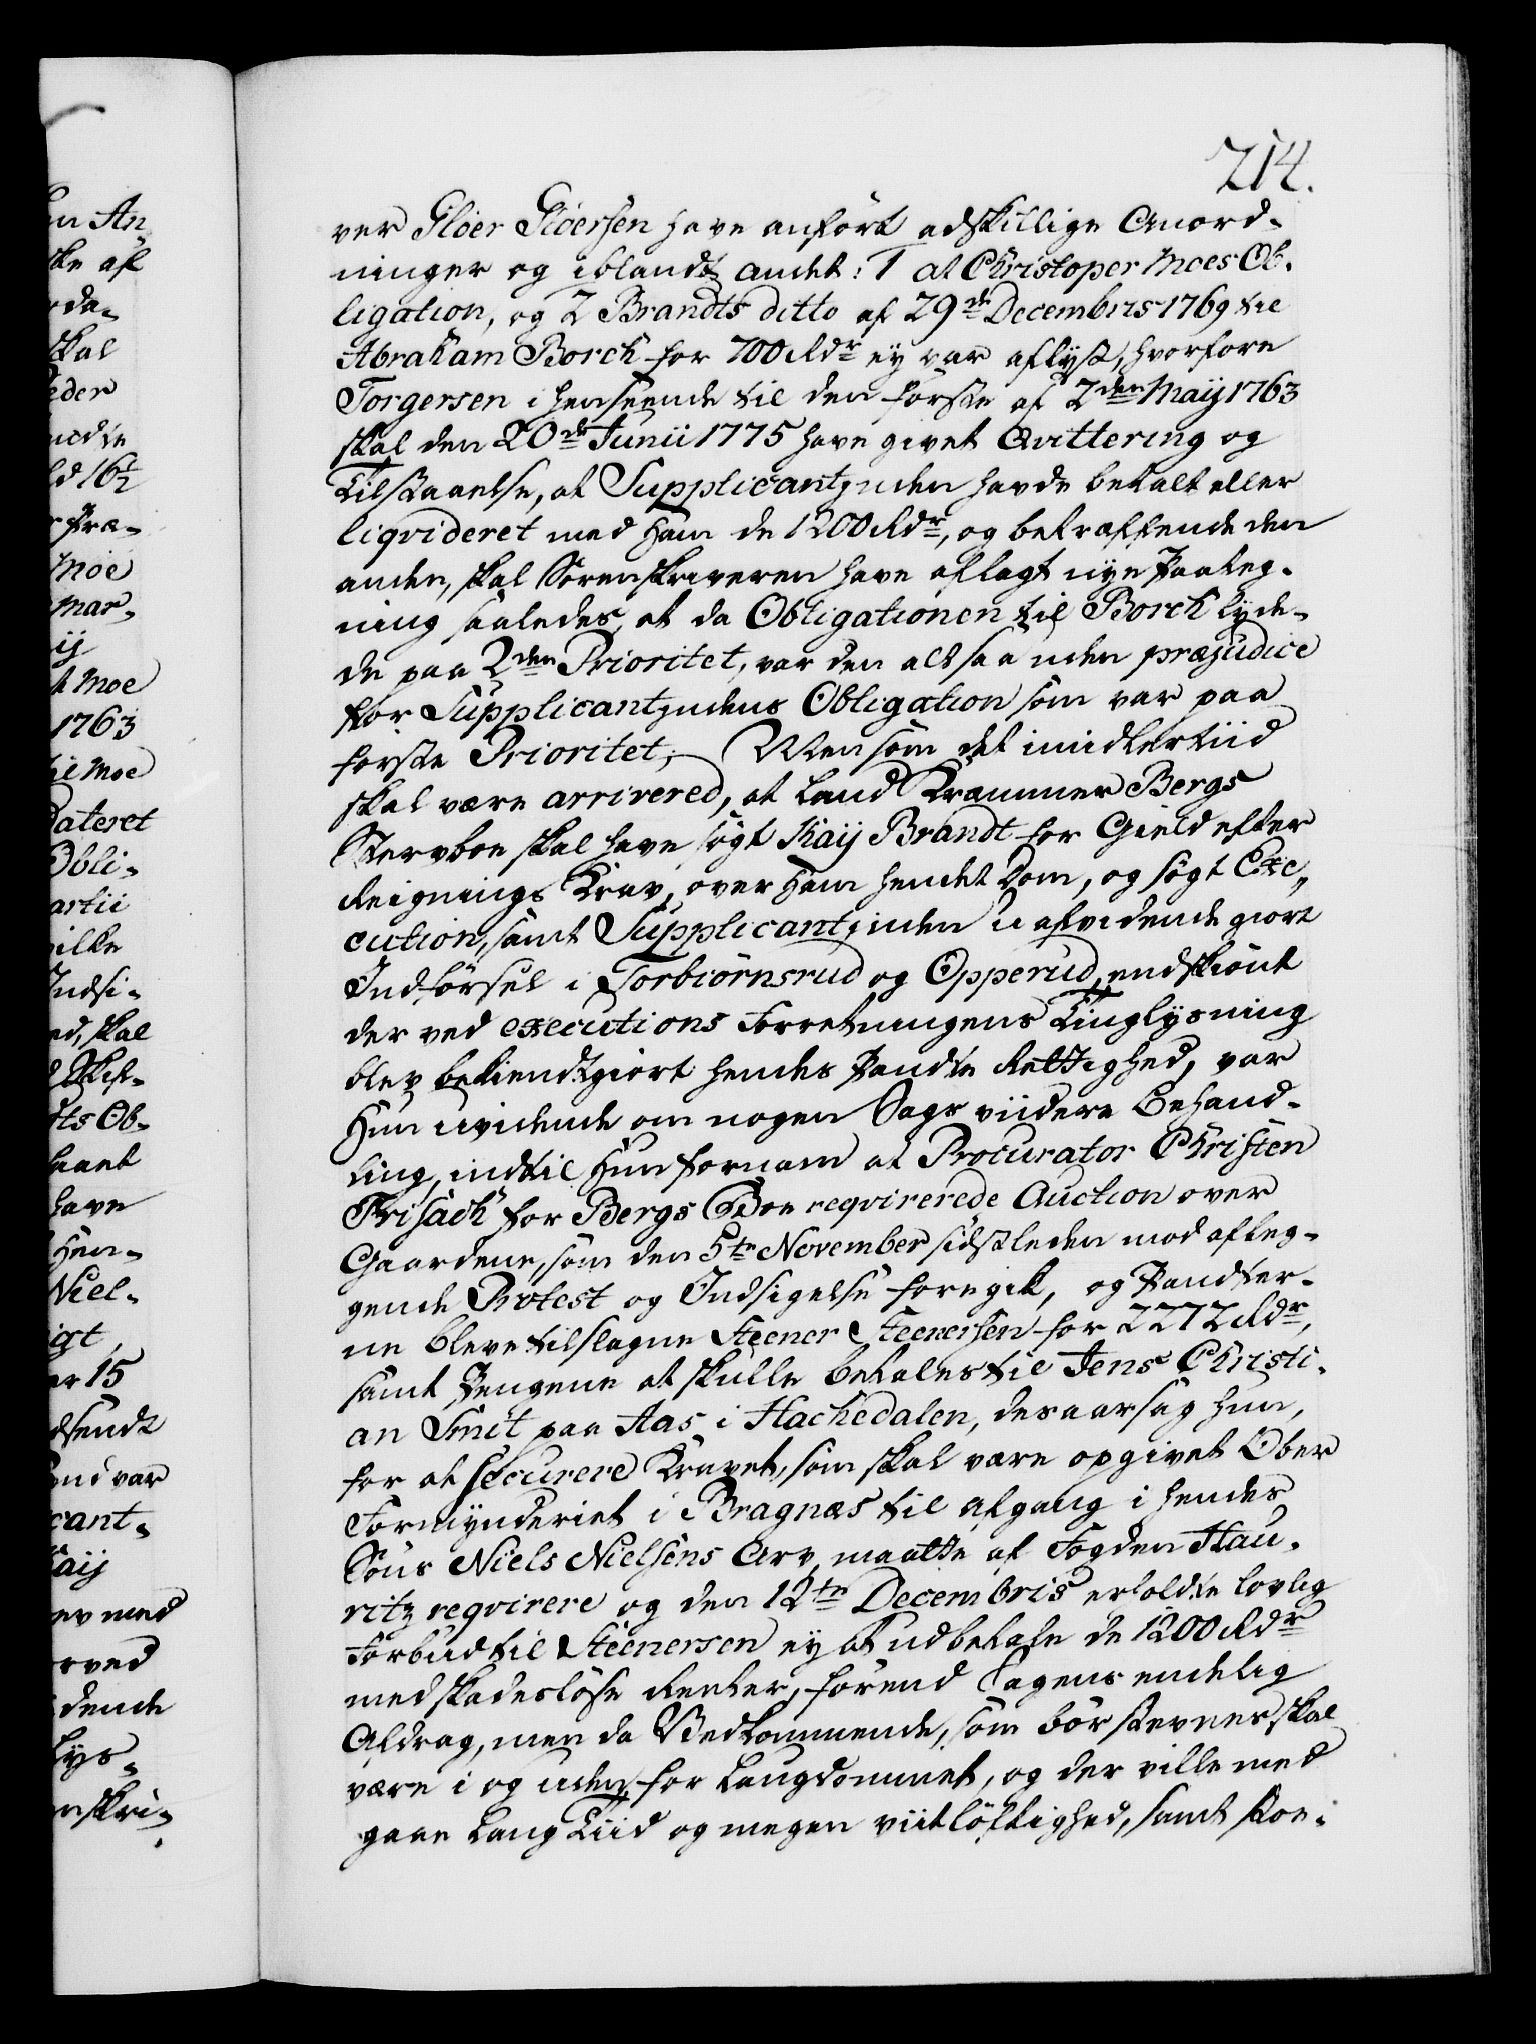 214.
ver Gløer Giøersen have anført adskillige Anord-
ninger og iblandt andet: 1 at Christoper Moes Ob-
ligation, og 2 Brandts ditto af 29de Decembris 1769 til
Abraham Borch for 700 Rdr ey var aflyst, hvorfore
Torgersen i henseende til den første af 2den Maij 1763
skal den 20de Junii 1775 have givet Qvittering og
Tilstaaelse, at Supplicantinden havde betalt eller
liqvideret med ham de 1200 Rdr, og betræffende den
anden, skal Sorenskriveren have aflagt nye Paateg-
ning saaledes, at da Obligationen til Borch lyde-
de paa 2den Prioritet, var den altsaa uden præjudice
for Supplicantindens Obligation som var paa
første Prioritet; Men som det imidlertiid
skal være arrivered, at Land Kræmmer Bergs
Stervboe skal have søgt Kaij Brandt for Gield efter
Reignings Krav, over ham hendet Dom, og søgt Exe-
cution, samt Supplicantinden uafvidende giort
Indførsel i Torbiørnsrud og Opperud, endskiønt
der ved executions Forretningens Tinglysning
blev bekiendtgiort hendes Pandte Rettighed, var
hun uvidende om nogen Sags viidere Behand-
ling, indtil hun fornam at Procurator Christen
Frisack for Bergs Boe reqvirerede Auction over
Gaardene, som den 5te November sidstleden mod afleg-
gende Protest og Indsigelse foregik, og Pandter-
ne bleve tilslagne Steener Steenersen for 2272 Rdr,
samt Pengene at skulle betales til Jens Christi-
an Smit paa Aas i Hachedalen, desaarsag hun,
for at securere Kravet, som skal være opgivet Ober
Formynderiet i Bragnæs til Afgang i hendes
Søns Niels Nielsens Arv, maatte af Fogden Hau-
ritz reqvirere og den 12te Decembris erholdte lovlig
Forbud til Steenersen ey at udbetale de 1200 Rdr
med skadesløse Renter, førend Sagens endelig
Aldrag, men da Vedkommende, som bør stevnes skal
være i og uden for Laugdømmet, og der ville med
gaae lang Tiid og megen viitløftighed, samt stoe-